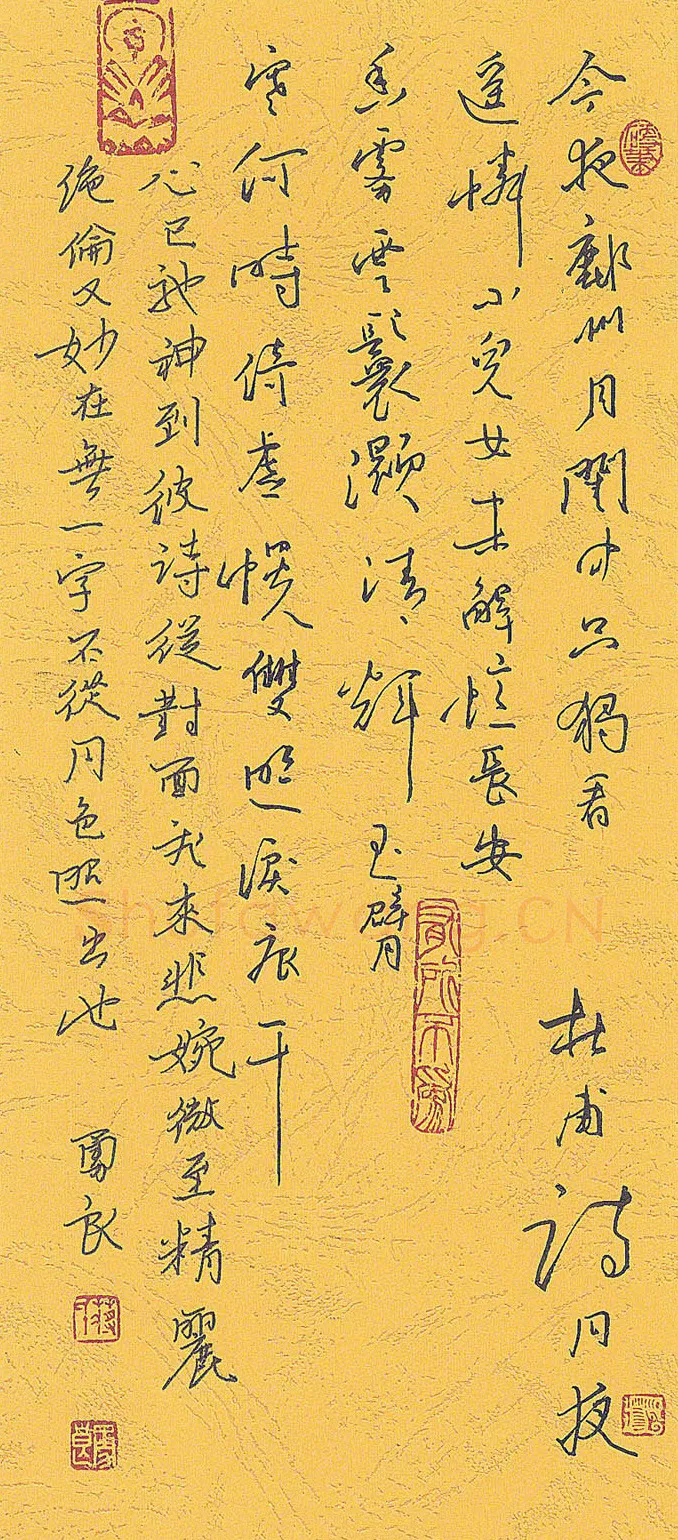 今夜鄜州月閨中只獨看 杜甫詩月夜
遥憐小兒女未解憶長安
香霧雲鬟濕清輝玉臂
有所不為
寒何時倚虛幌雙照淚痕干
心已馳神到彼詩從對面飛來悲婉微至精麗
絕倫又妙在無一字不從月色照出也 勇良
shufawang.CN